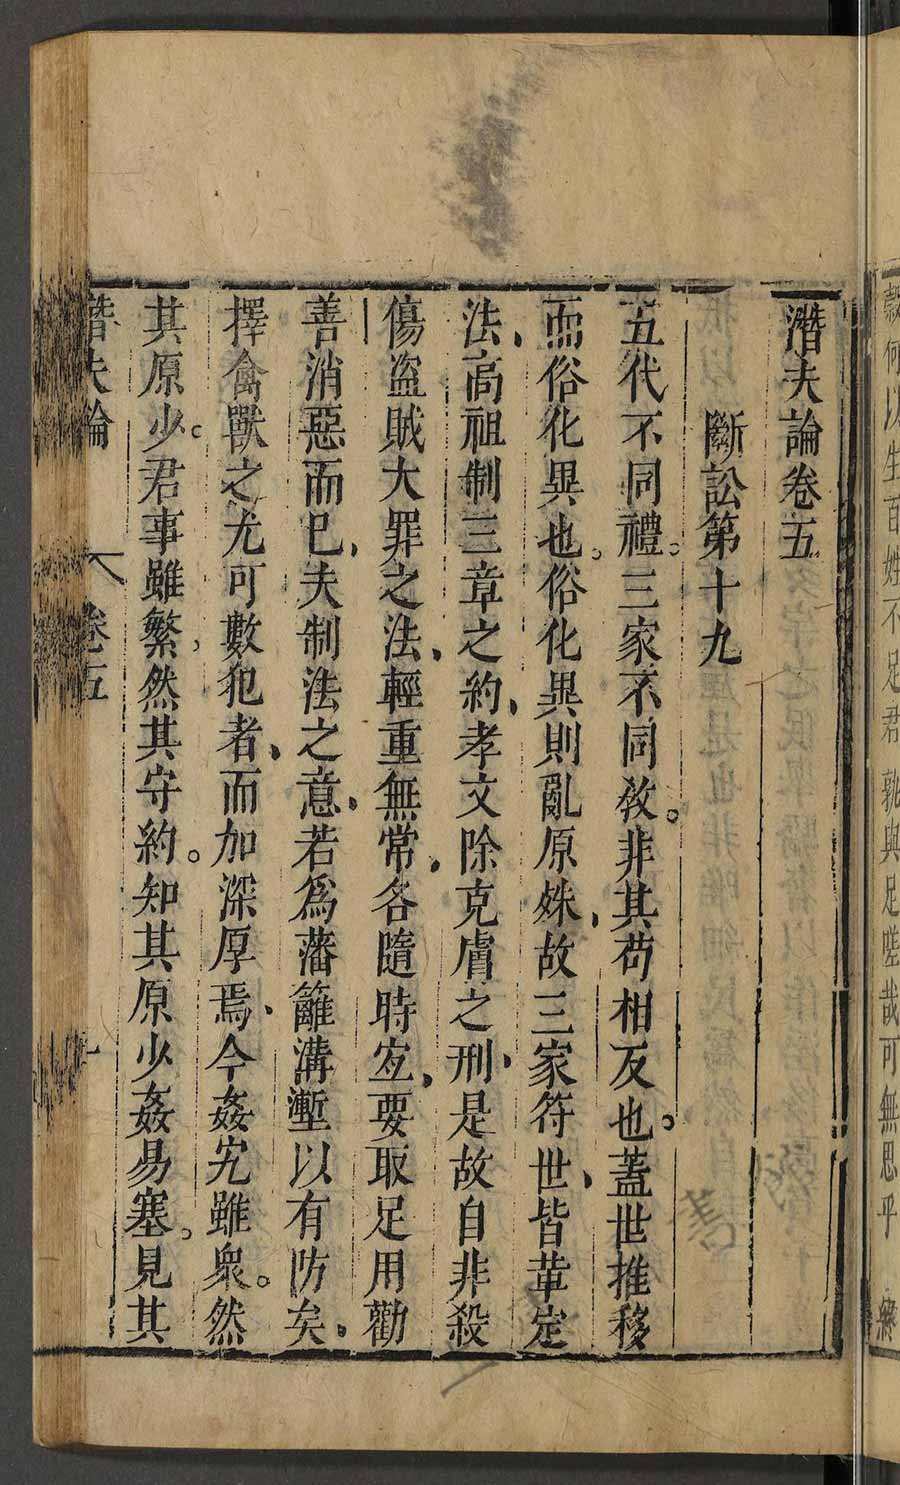 潛夫論卷五
斷訟第十九
五代不同禮。三家不同教。非其苟相反也。蓋世推移
而俗化異也。俗化異則亂原殊、故三家符世、皆革定
法、高祖制三章之約、孝文除克膚之刑、是故自非殺
傷盜賊大罪之法、輕重無常、各隨時宐、要取足用勸
善消惡而已、夫制法之意、若爲藩籬溝壍以有防矣、
擇禽獸之尤可數犯者、而加深厚焉、今姦宄雖衆。然
其原少。君事雖繁、然其守約。知其原少姦易塞。見其
潛夫論 卷五
穀何以生百姓不足君孰與足嗟哉可無思乎